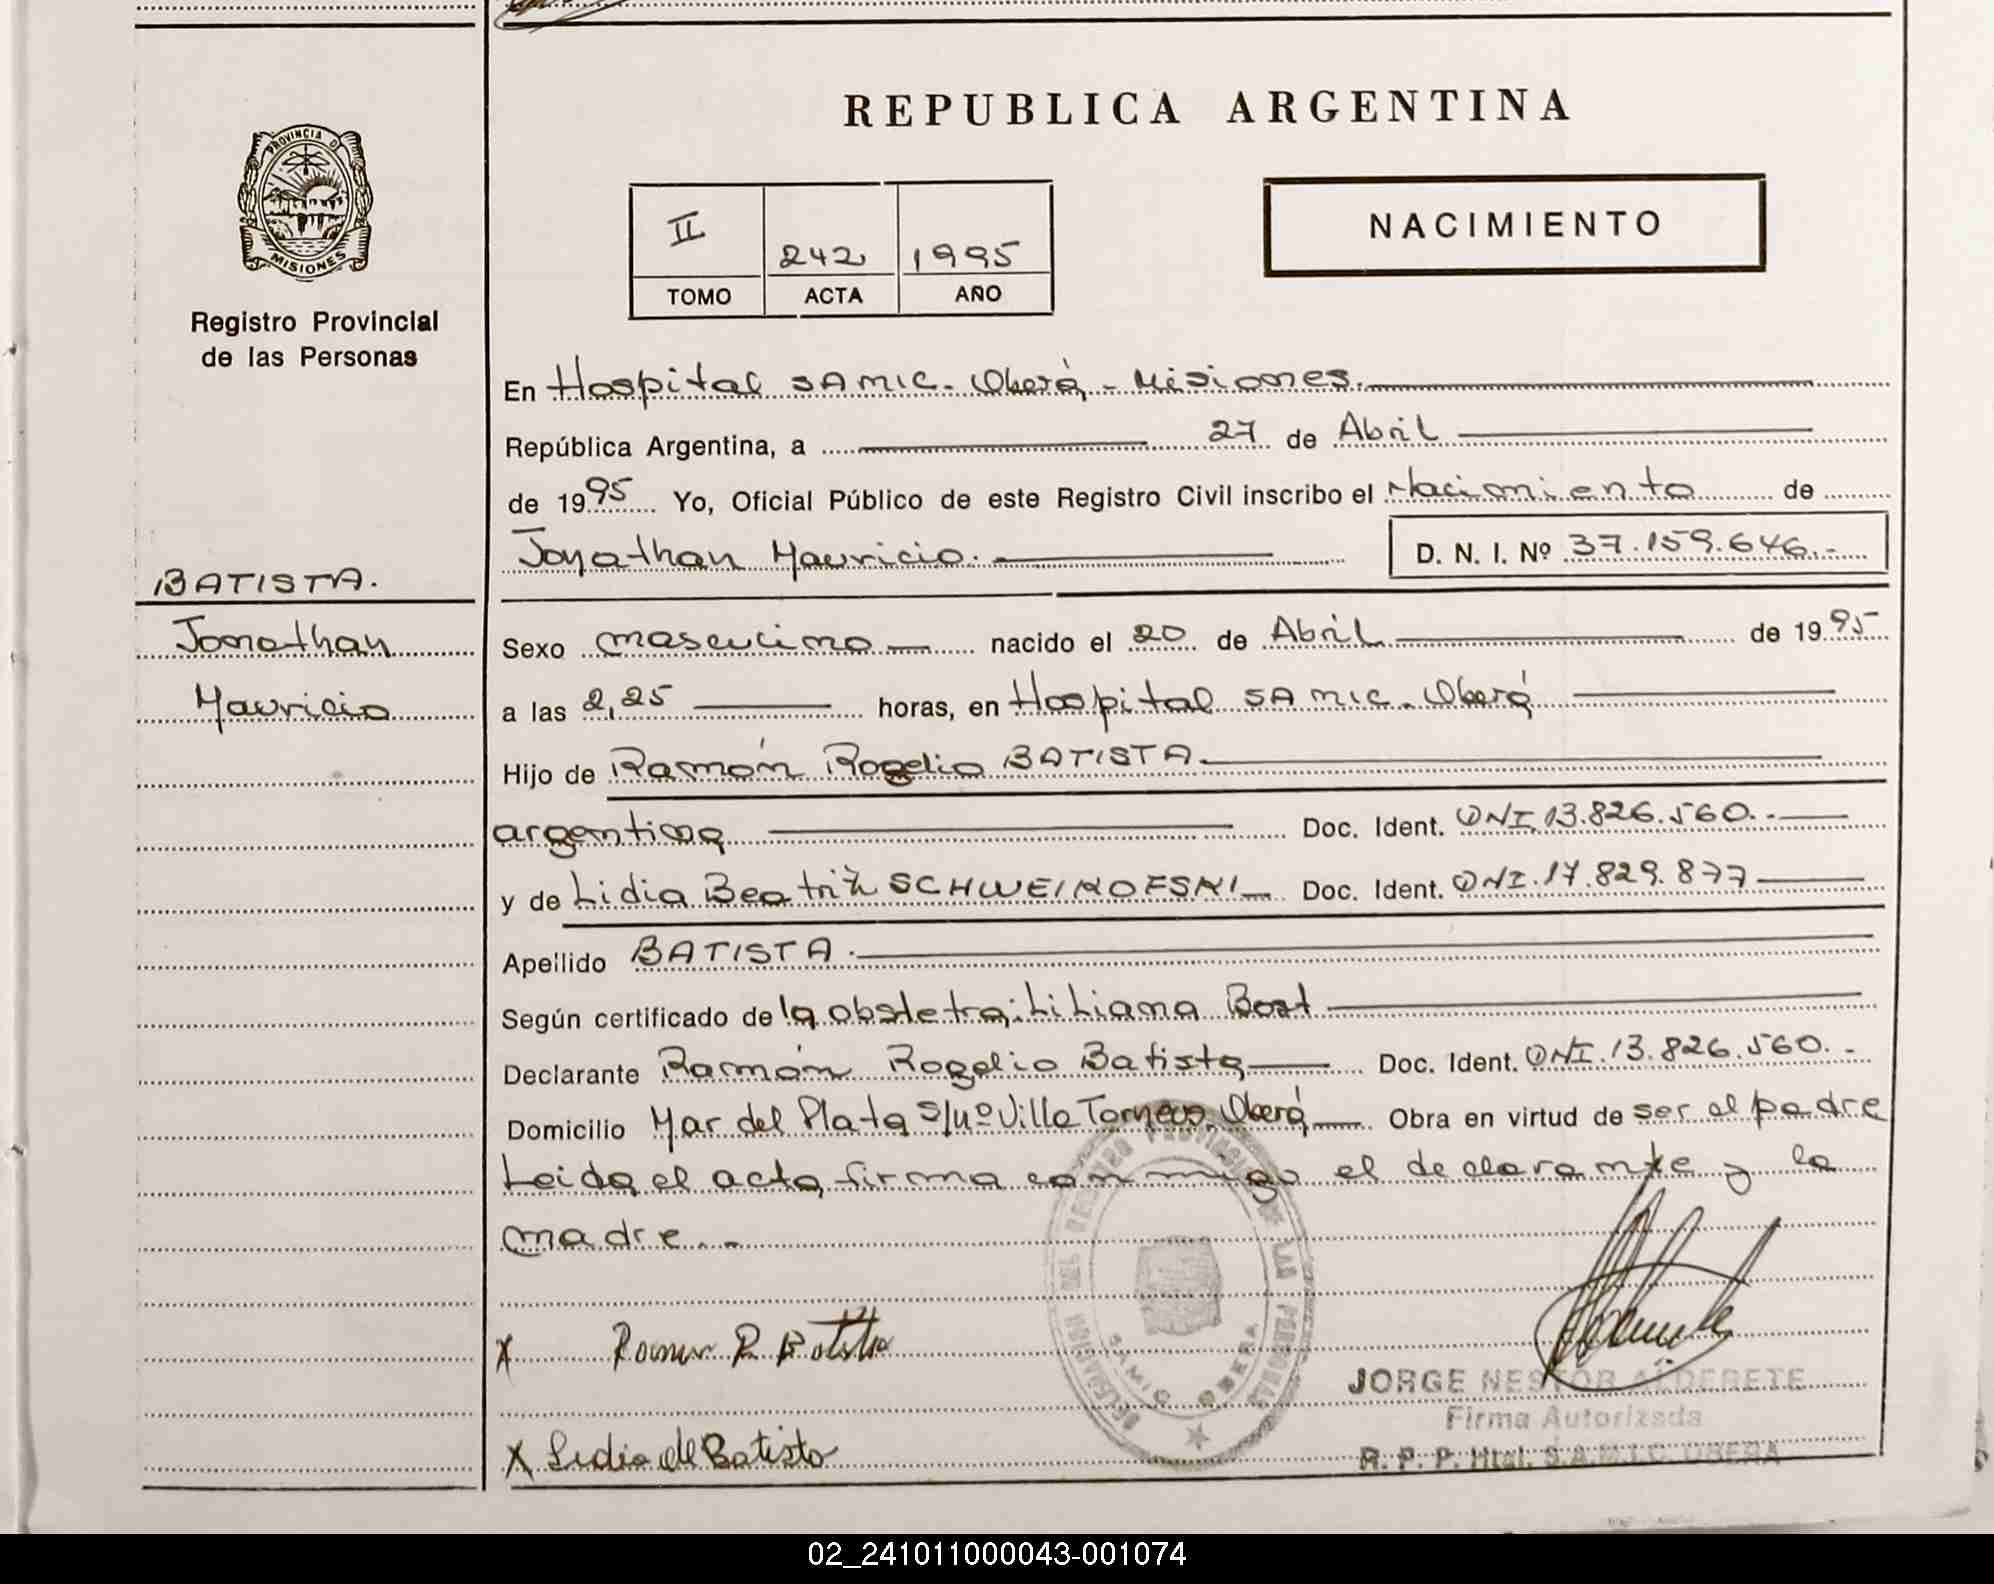 REPUBLICA ARGENTINA
PROVINCIA D
MISIONES
Registro Provincial
de las Personas
II 242 1995
TOMO ACTA AÑO
NACIMIENTO
En Hospital SAMIC. Oberá - Misiones.
República Argentina, a 27 de Abril
de 1995 Yo, Oficial Público de este Registro Civil inscribo el Nacimiento de
Jonathan Mauricio. D. N. I. Nº 37.159.646.-
BATISTA.
Jonathan
Mauricio
Sexo masculino nacido el 20 de Abril de 1995
a las 2,25 horas, en Hospital SAMIC. Oberá
Hijo de Ramón Rogelio BATISTA
argentina Doc. Ident. DNI 13.826.560.-
y de Lidia Beatriz Doc. Ident. DNI.17.829.877
Apellido BATISTA.
Según certificado de la obstetra: Liliana
Declarante Ramón Rogelio Batista Doc. Ident. DNI.13.826.560.-
Domicilio Mar del Plata s/nº Villa Oberá Obra en virtud de ser el padre
Leida el acta, firma conmigo el declarante y la
madre.-
X Ramon R Batista
X Lidia de Batista
DELEGACION DEL REGISTRO PROVINCIAL DE LAS PERSONAS
SAMIC OBERA
JORGE NESTOR ALDERETE
Firma Autorizada
R. P. P. Htal. S.A.M.I.C. OBERA
02_241011000043-001074